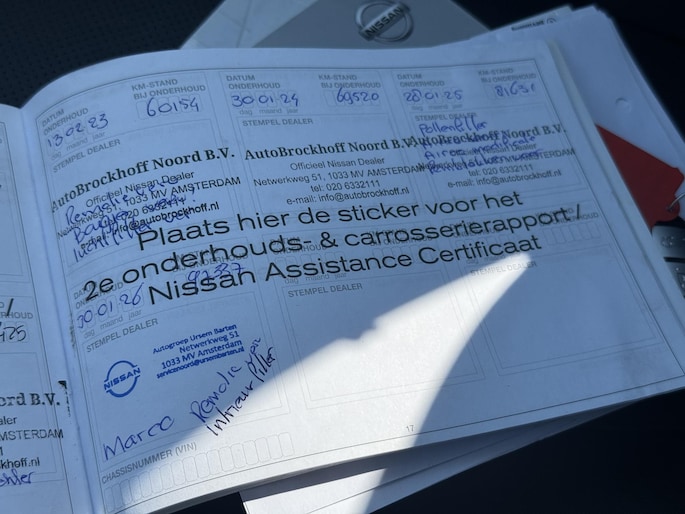 NISSAN
DATUM ONDERHOUD
KM-STAND BIJ ONDERHOUD
DATUM ONDERHOUD
KM-STAND BIJ ONDERHOUD
DATUM ONDERHOUD
KM-STAND BIJ ONDERHOUD
13.02.23
60154
30.01.24
69520
28.01.25
81631
dag maand jaar
dag maand jaar
dag maand jaar
STEMPEL DEALER
STEMPEL DEALER
STEMPEL DEALER
Pollenfilter
AutoBrockhoff Noord B.V.
AutoBrockhoff Noord B.V.
AutoBrockhoff Noord B.V.
Officieel Nissan Dealer
Officieel Nissan Dealer
Netwerkweg 51, 1033 MV AMSTERDAM
Netwerkweg 51, 1033 MV AMSTERDAM
AMSTERDAM
tel: 020 6332111
tel: 020 6332111
info@autobrockhoff.nl
e-mail: info@autobrockhoff.nl
e-mail: info@autobrockhoff.nl
luchtfilter
Plaats hier de sticker voor het
2e onderhouds- & carrosserierapport /
Nissan Assistance Certificaat
30.01.26
dag maand jaar
STEMPEL DEALER
STEMPEL DEALER
STEMPEL DEALER
NISSAN
Autogroep Ursem Barten
Netwerkweg 51
1033 MV Amsterdam
servicenoord@ursembarten.nl
Marco
Interieur filter
CHASSISNUMMER (VIN)
17
425
d B.V.
aler
MSTERDAM
khoff.nl